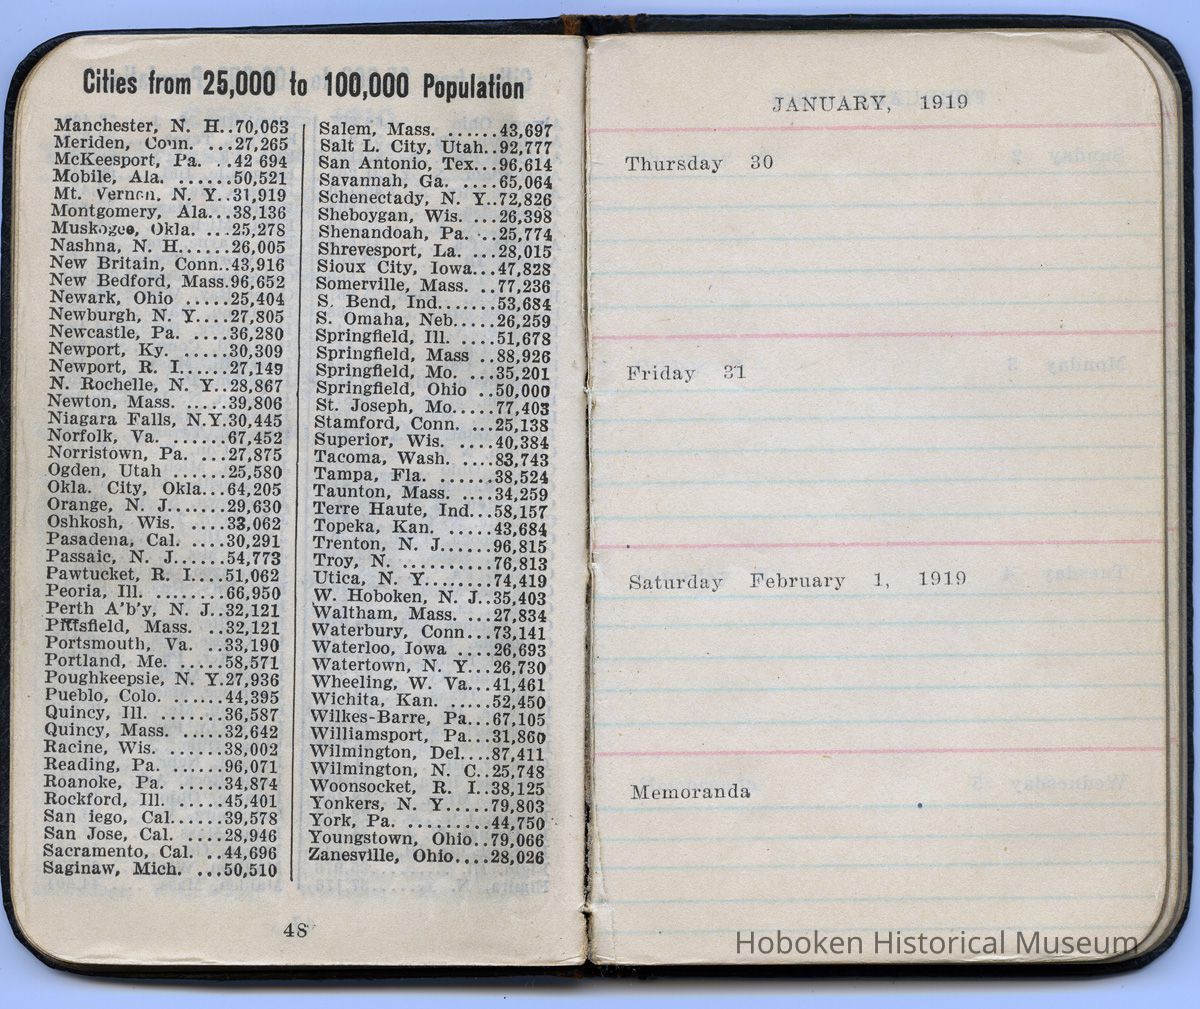 Cities from 25,000 to 100,000 Population
Manchester, N. H..70,063
Meriden, Conn. ...27,265
McKeesport, Pa. ..42 694
Mobile, Ala. ......50,521
Mt. Vernon, N. Y..31,919
Montgomery, Ala...38,136
Muskogee, Okla. ...25,278
Nashna, N. H......26,005
New Britain, Conn..43,916
New Bedford, Mass.96,652
Newark, Ohio .....25,404
Newburgh, N. Y....27,805
Newcastle, Pa. ....36,280
Newport, Ky. .....30,309
Newport, R. I.....27,149
N. Rochelle, N. Y..28,867
Newton, Mass. .....39,806
Niagara Falls, N.Y.30,445
Norfolk, Va. ......67,452
Norristown, Pa. ...27,875
Ogden, Utah ......25,580
Okla. City, Okla...64,205
Orange, N. J.......29,630
Oshkosh, Wis. ....33,062
Pasadena, Cal. ....30,291
Passaic, N. J......54,773
Pawtucket, R. I....51,062
Peoria, Ill. ........66,950
Perth A'b'y, N. J..32,121
Pittsfield, Mass. ..32,121
Portsmouth, Va. ..33,190
Portland, Me. .....58,571
Poughkeepsie, N. Y.27,936
Pueblo, Colo. ......44,395
Quincy, Ill. .......36,587
Quincy, Mass. .....32,642
Racine, Wis. ......38,002
Reading, Pa. ......96,071
Roanoke, Pa. .....34,874
Rockford, Ill. .....45,401
San iego, Cal......39,578
San Jose, Cal. ....28,946
Sacramento, Cal. ..44,696
Saginaw, Mich. ...50,510
Salem, Mass. ......43,697
Salt L. City, Utah..92,777
San Antonio, Tex...96,614
Savannah, Ga. ....65,064
Schenectady, N. Y..72,826
Sheboygan, Wis. ...26,398
Shenandoah, Pa. ...25,774
Shrevesport, La. ...28,015
Sioux City, Iowa...47,828
Somerville, Mass. ..77,236
S. Bend, Ind.......53,684
S. Omaha, Neb.....26,259
Springfield, Ill. ....51,678
Springfield, Mass ..88,926
Springfield, Mo. ...35,201
Springfield, Ohio ..50,000
St. Joseph, Mo.....77,403
Stamford, Conn. ...25,138
Superior, Wis. ....40,384
Tacoma, Wash. ....83,743
Tampa, Fla. ......38,524
Taunton, Mass. ....34,259
Terre Haute, Ind...58,157
Topeka, Kan. .....43,684
Trenton, N. J......96,815
Troy, N. ..........76,813
Utica, N. Y.......74,419
W. Hoboken, N. J..35,403
Waltham, Mass. ...27,834
Waterbury, Conn...73,141
Waterloo, Iowa ....26,693
Watertown, N. Y...26,730
Wheeling, W. Va...41,461
Wichita, Kan. .....52,450
Wilkes-Barre, Pa...67,105
Williamsport, Pa...31,860
Wilmington, Del....87,411
Wilmington, N. C..25,748
Woonsocket, R. I..38,125
Yonkers, N. Y.....79,803
York, Pa. .........44,750
Youngstown, Ohio..79,066
Zanesville, Ohio....28,026
48
JANUARY, 1919
Thursday 30
Friday 31
Saturday February 1, 1919
Memoranda
Hoboken Historical Museum